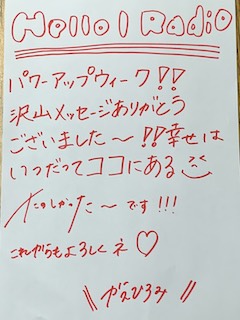 Hello! Radio
パワーアップウィーク!!
沢山メッセージありがとう
ございました〜!!幸せは
いつだってココにある
たのしかった〜です!!!
これからもよろしくネ♡
\\ がえひろみ //